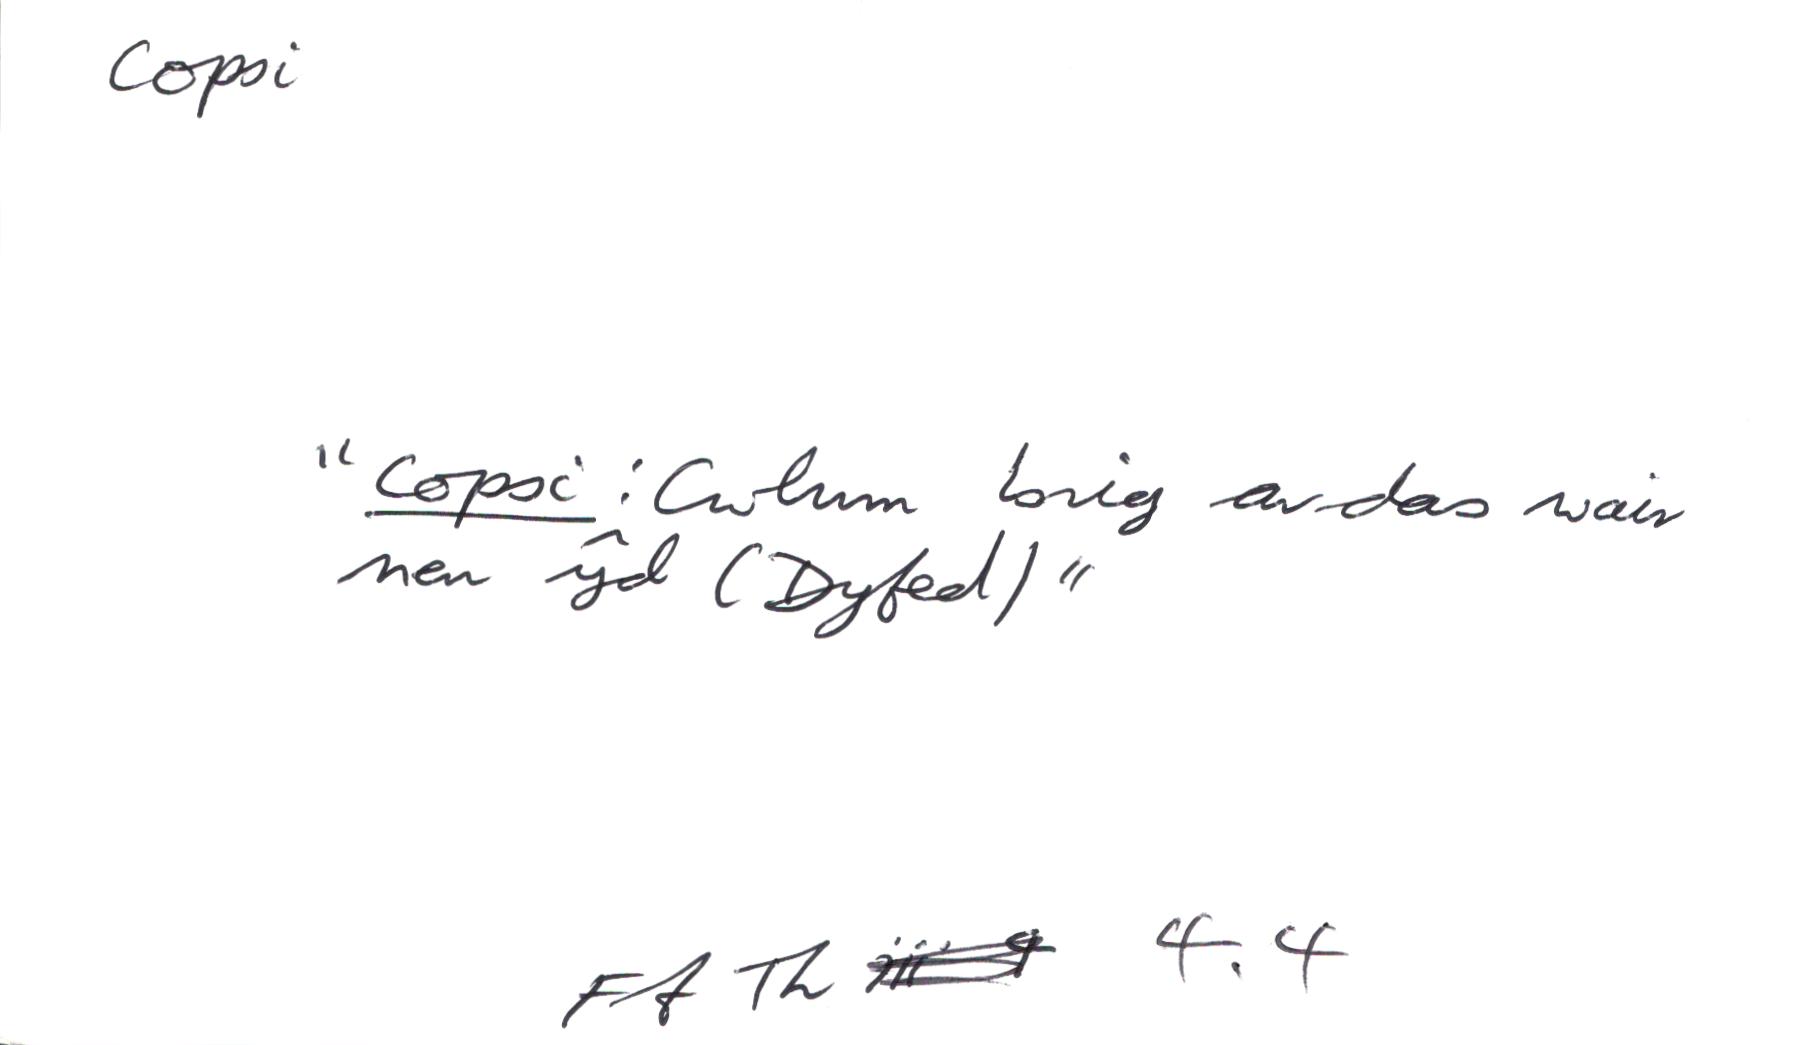 Copsi
"Copsi: Cwlwm brig ar das wair
neu ŷd (Dyfed)"
Ff Th 4.4